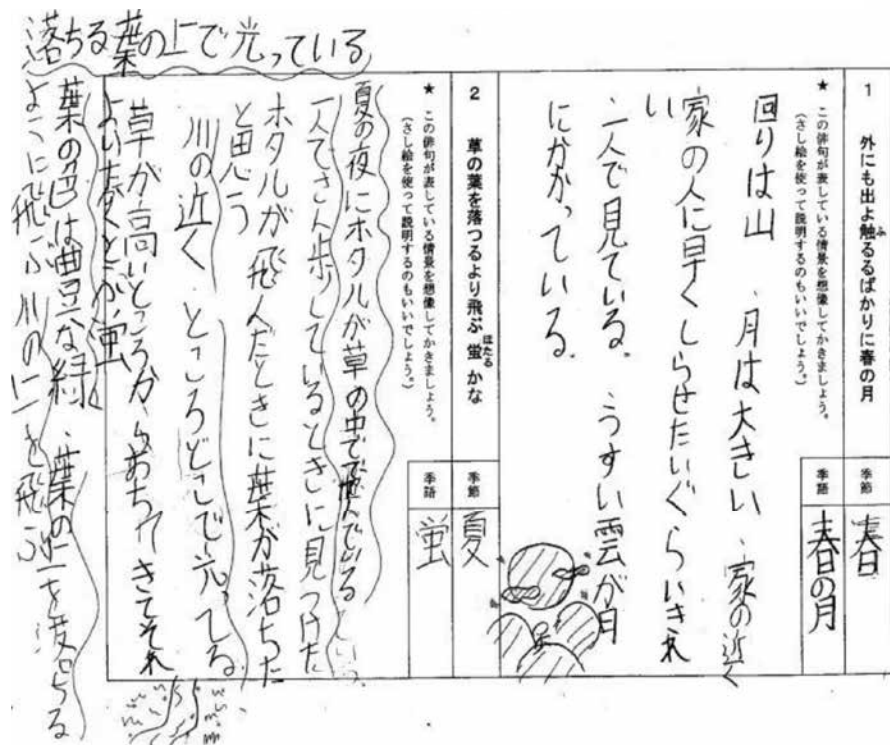 1 外にも出よ触るるばかりに春の月
ふ
季節 春
季語 春の月
★ この俳句が表している情景を想像してかきましょう。
(さし絵を使って説明するのもいいでしょう。)
回りは山、月は大きい、家の近く
家の人に早くしらせたいぐらいきれ
い
一人で見ている。うすい雲が月
にかかっている。
2 草の葉を落つるより飛ぶ蛍かな
ほたる
季節 夏
季語 蛍
★ この俳句が表している情景を想像してかきましょう。
(さし絵を使って説明するのもいいでしょう。)
夏の夜にホタルが草の中で飛んでいる
一人でさん歩しているときに見つけた
ホタルが飛んだときに葉が落ちた
と思う
川の近く ところどこで光ってる
草が高いところからおちてきてそれ
葉の色は曲豆な緑、葉の上を
ように飛ぶ 川の上を飛ぶ
落ちる葉の上で光っている